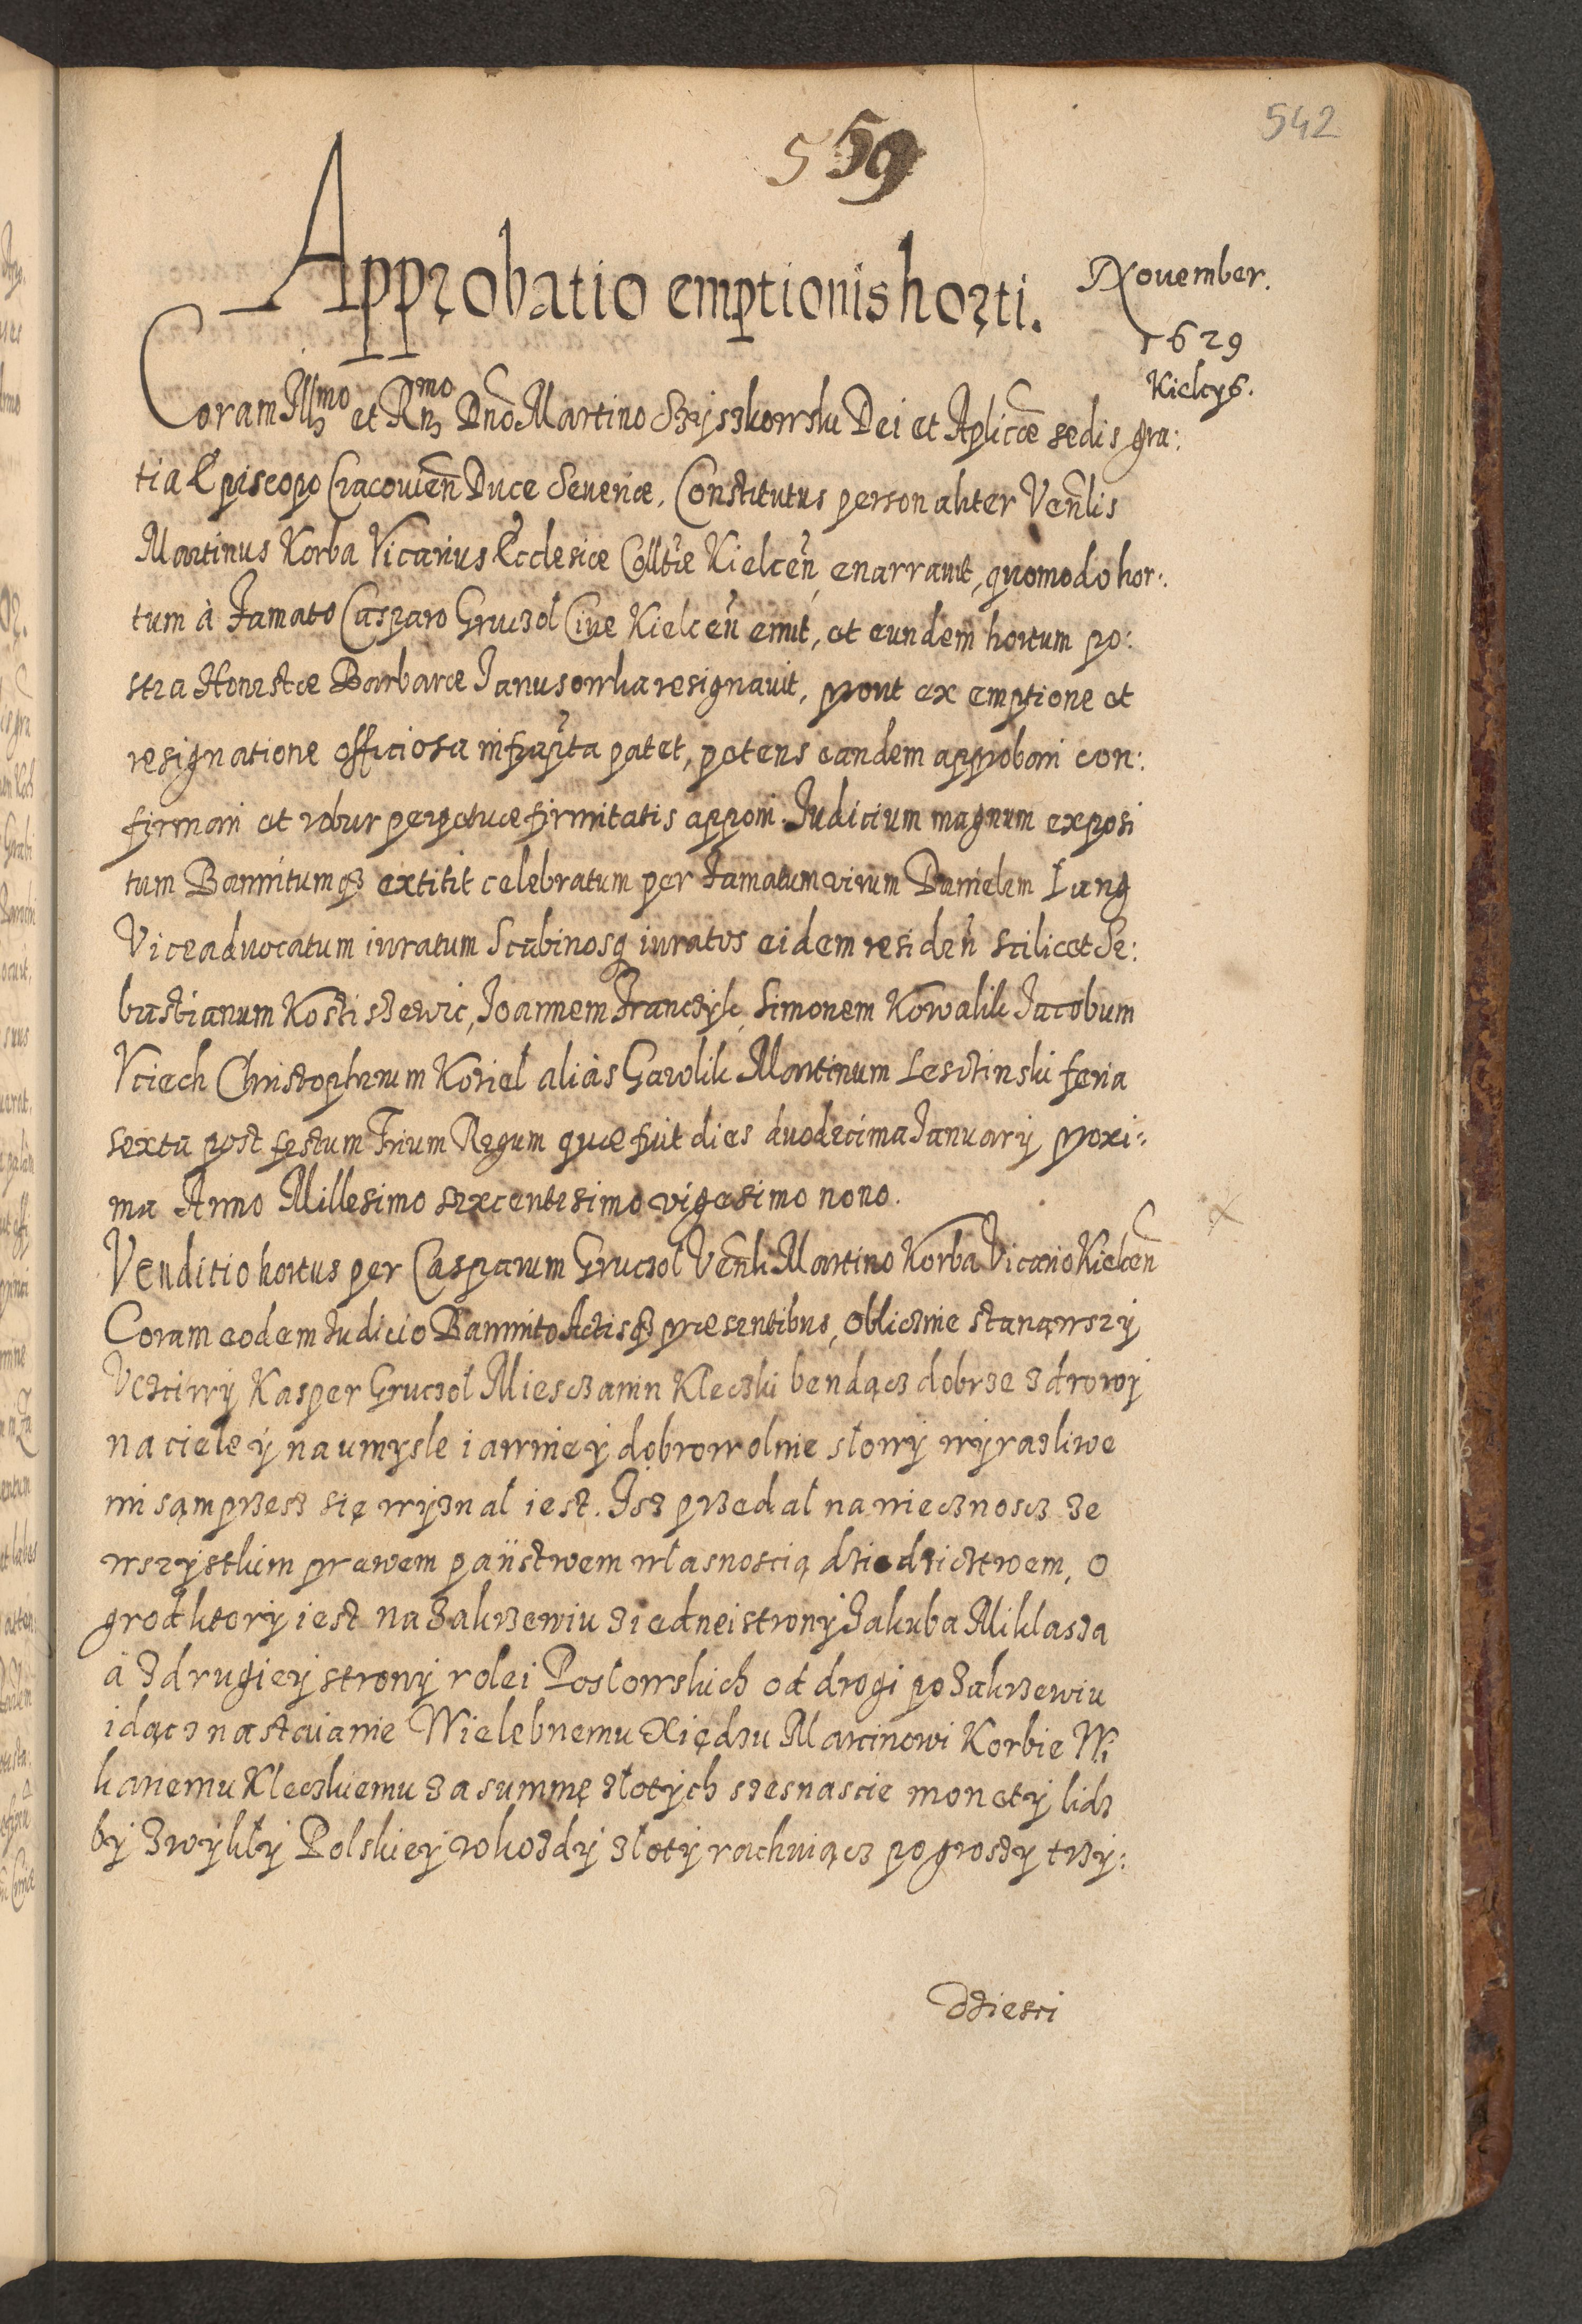 542
559
Approbatio emptionis horti.
November.
1629
Kielcys.
Coram Illmo et Rndmo Dno Martino Szyszkowski Dei et Aplicæ sedis gra:
tia Episcopo Cracovien Duce Severiæ. Constitutus personaliter Venlis
Martinus Korba Vicarius Ecclesiæ Colltæ Kielcen, enarravit, quomodo hor:
tum à Famato Casparo Gruczoł Cive Kielcen emit, et eundem hortum po:
stea Honestæ Barbaræ Janusowska resignavit, prout ex emptione et
resignatione officiosa infrapta patet, petens eandem approbari con:
firmari et robur perpetuæ firmitatis apponi. Judicium magnum exposi
tum Bannitumq3 extitit celebratum per Famatum virum Danielem Lang
Viceadvocatum iuratum Scabinosq iuratos eidem residen scilicet Se:
bastianum Kostiszewic, Joannem Franczyk, Simonem Kowalik Jacobum
Vciech Christopherum Koziel aliàs Garolik Martinum Lesctinski feria
sexta post festum Trium Regum quæ fuit dies duodecima Januarij proxi:
ma Anno Millesimo sexcentesimo vigesimo nono.
Venditio hortus per Casparum Gruczoł Venli Martino Korba Vicario Kielcen
Coram eodem Judicio Bannito Actisq3 præsentibus, oblicznie stanąwszy
Vcztiwy Kasper Gruczoł Miesczanin Kleczki bendącz dobrze zdrowy
na ciele ÿ na umysle iawnie ÿ dobrowolnie słowy wyrazliwe
mi sąm przesz się wyznał iest. Jsz przedał na wiecznoscz ze
wszystkim prawem państwem własnoscią dziedzictwem, o
grod ktory iest na Zakrzewiu z iednei strony Jakuba Miklasza
á z drugiey strony rolei Posłowskich od drogi po Zakrzewiu
idącz na staianie Wielebnemu Xiędzu Marcinowi Korbie Wi
karemu Kleczkiemu za summę złotych szesnascie monety lidz
by zwykłÿ Polskiey w kozdy złoty rachuiącz po groszy trzy:
dziesci